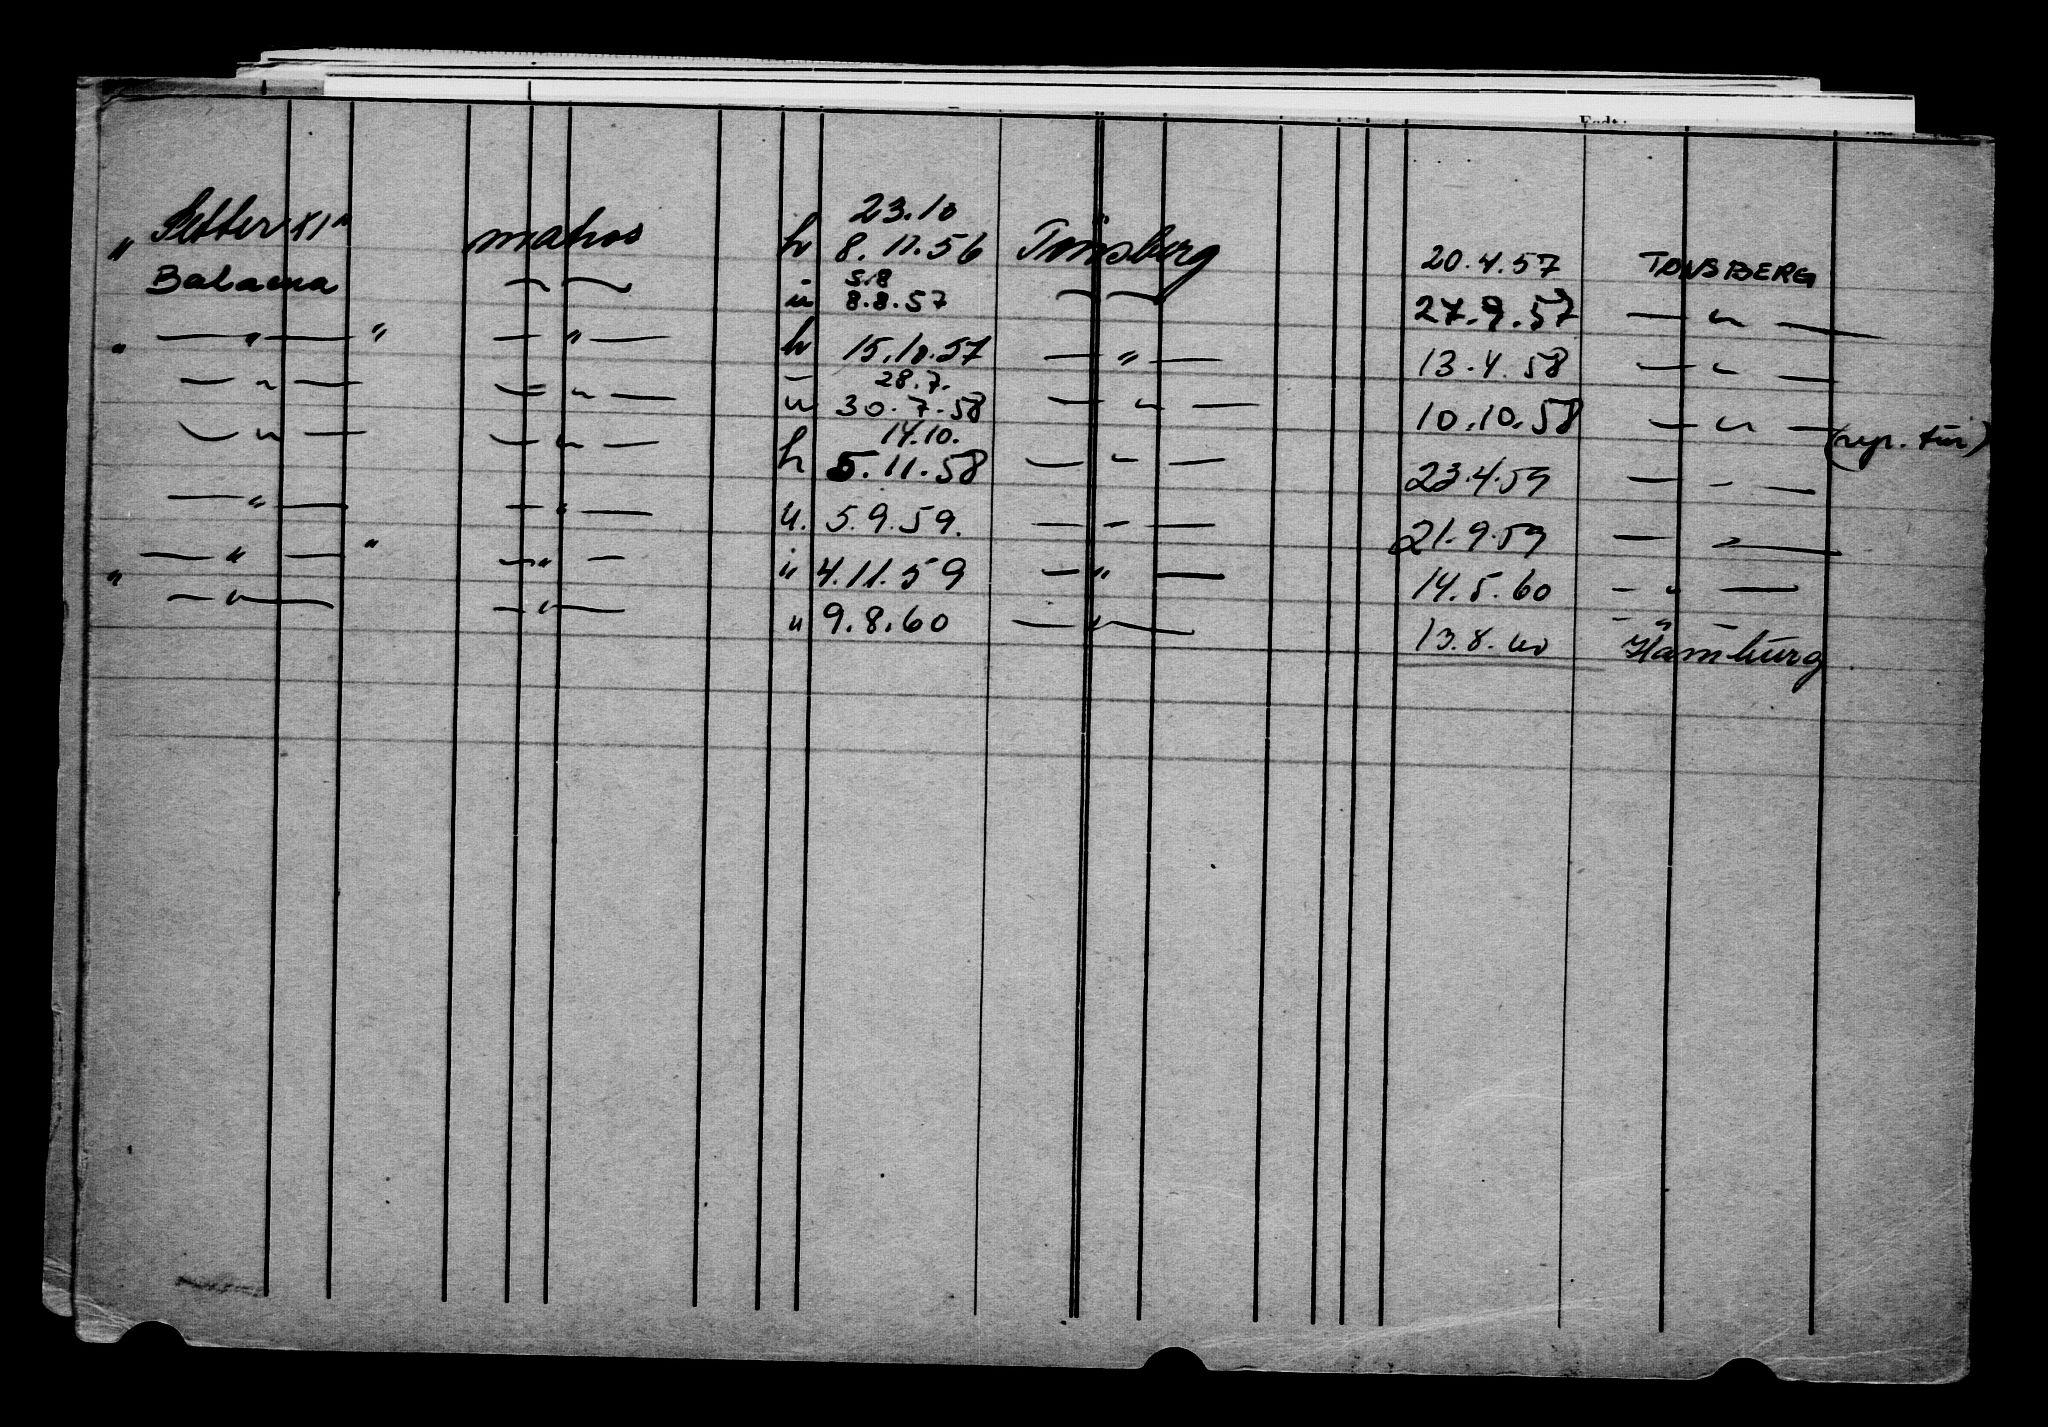 Født:
23.10
„ Setter XI" matros h 8.11.56 Tønsberg 20.4.57 TØNSBERG
5.8
Balaena — — u 8.8.57 — — 27.9.57 — " —
„ — " — " — " — h 15.10.57 — " — 13.4.58 — " —
28.7.
— " — — " — u 30.7.58 — " — 10.10.58 — " — (rep. tur)
14.10.
— " — — " — h 5.11.58 — " — 23.4.59 — " —
— " — — " — u. 5.9.59. — " — 21.9.59 — " —
„ — " — " — " — u 4.11.59 — " — 14.5.60 — " —
— " —
— " — — " — u 9.8.60 — " — 13.8.60 Hamburg